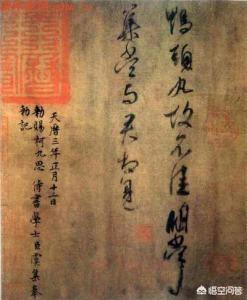 鴨頭丸故不佳明當必
集當與君相見
天曆三年正月十二日
勑賜柯九思 侍書學士臣虞集奉
勑記
悟空问答